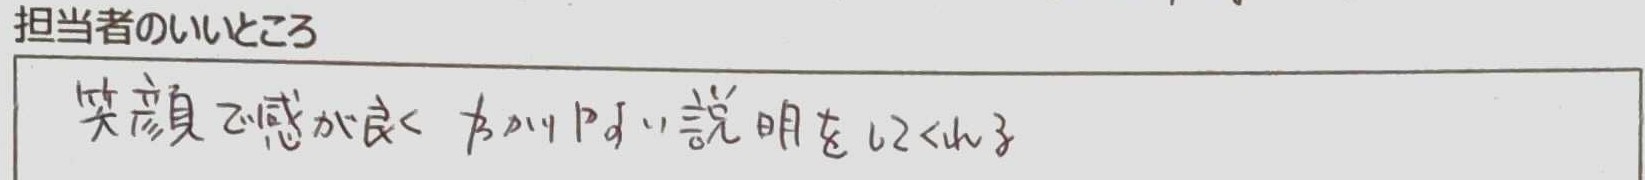 担当者のいいところ
笑顔で感が良く わかりやすい説明をしてくれる